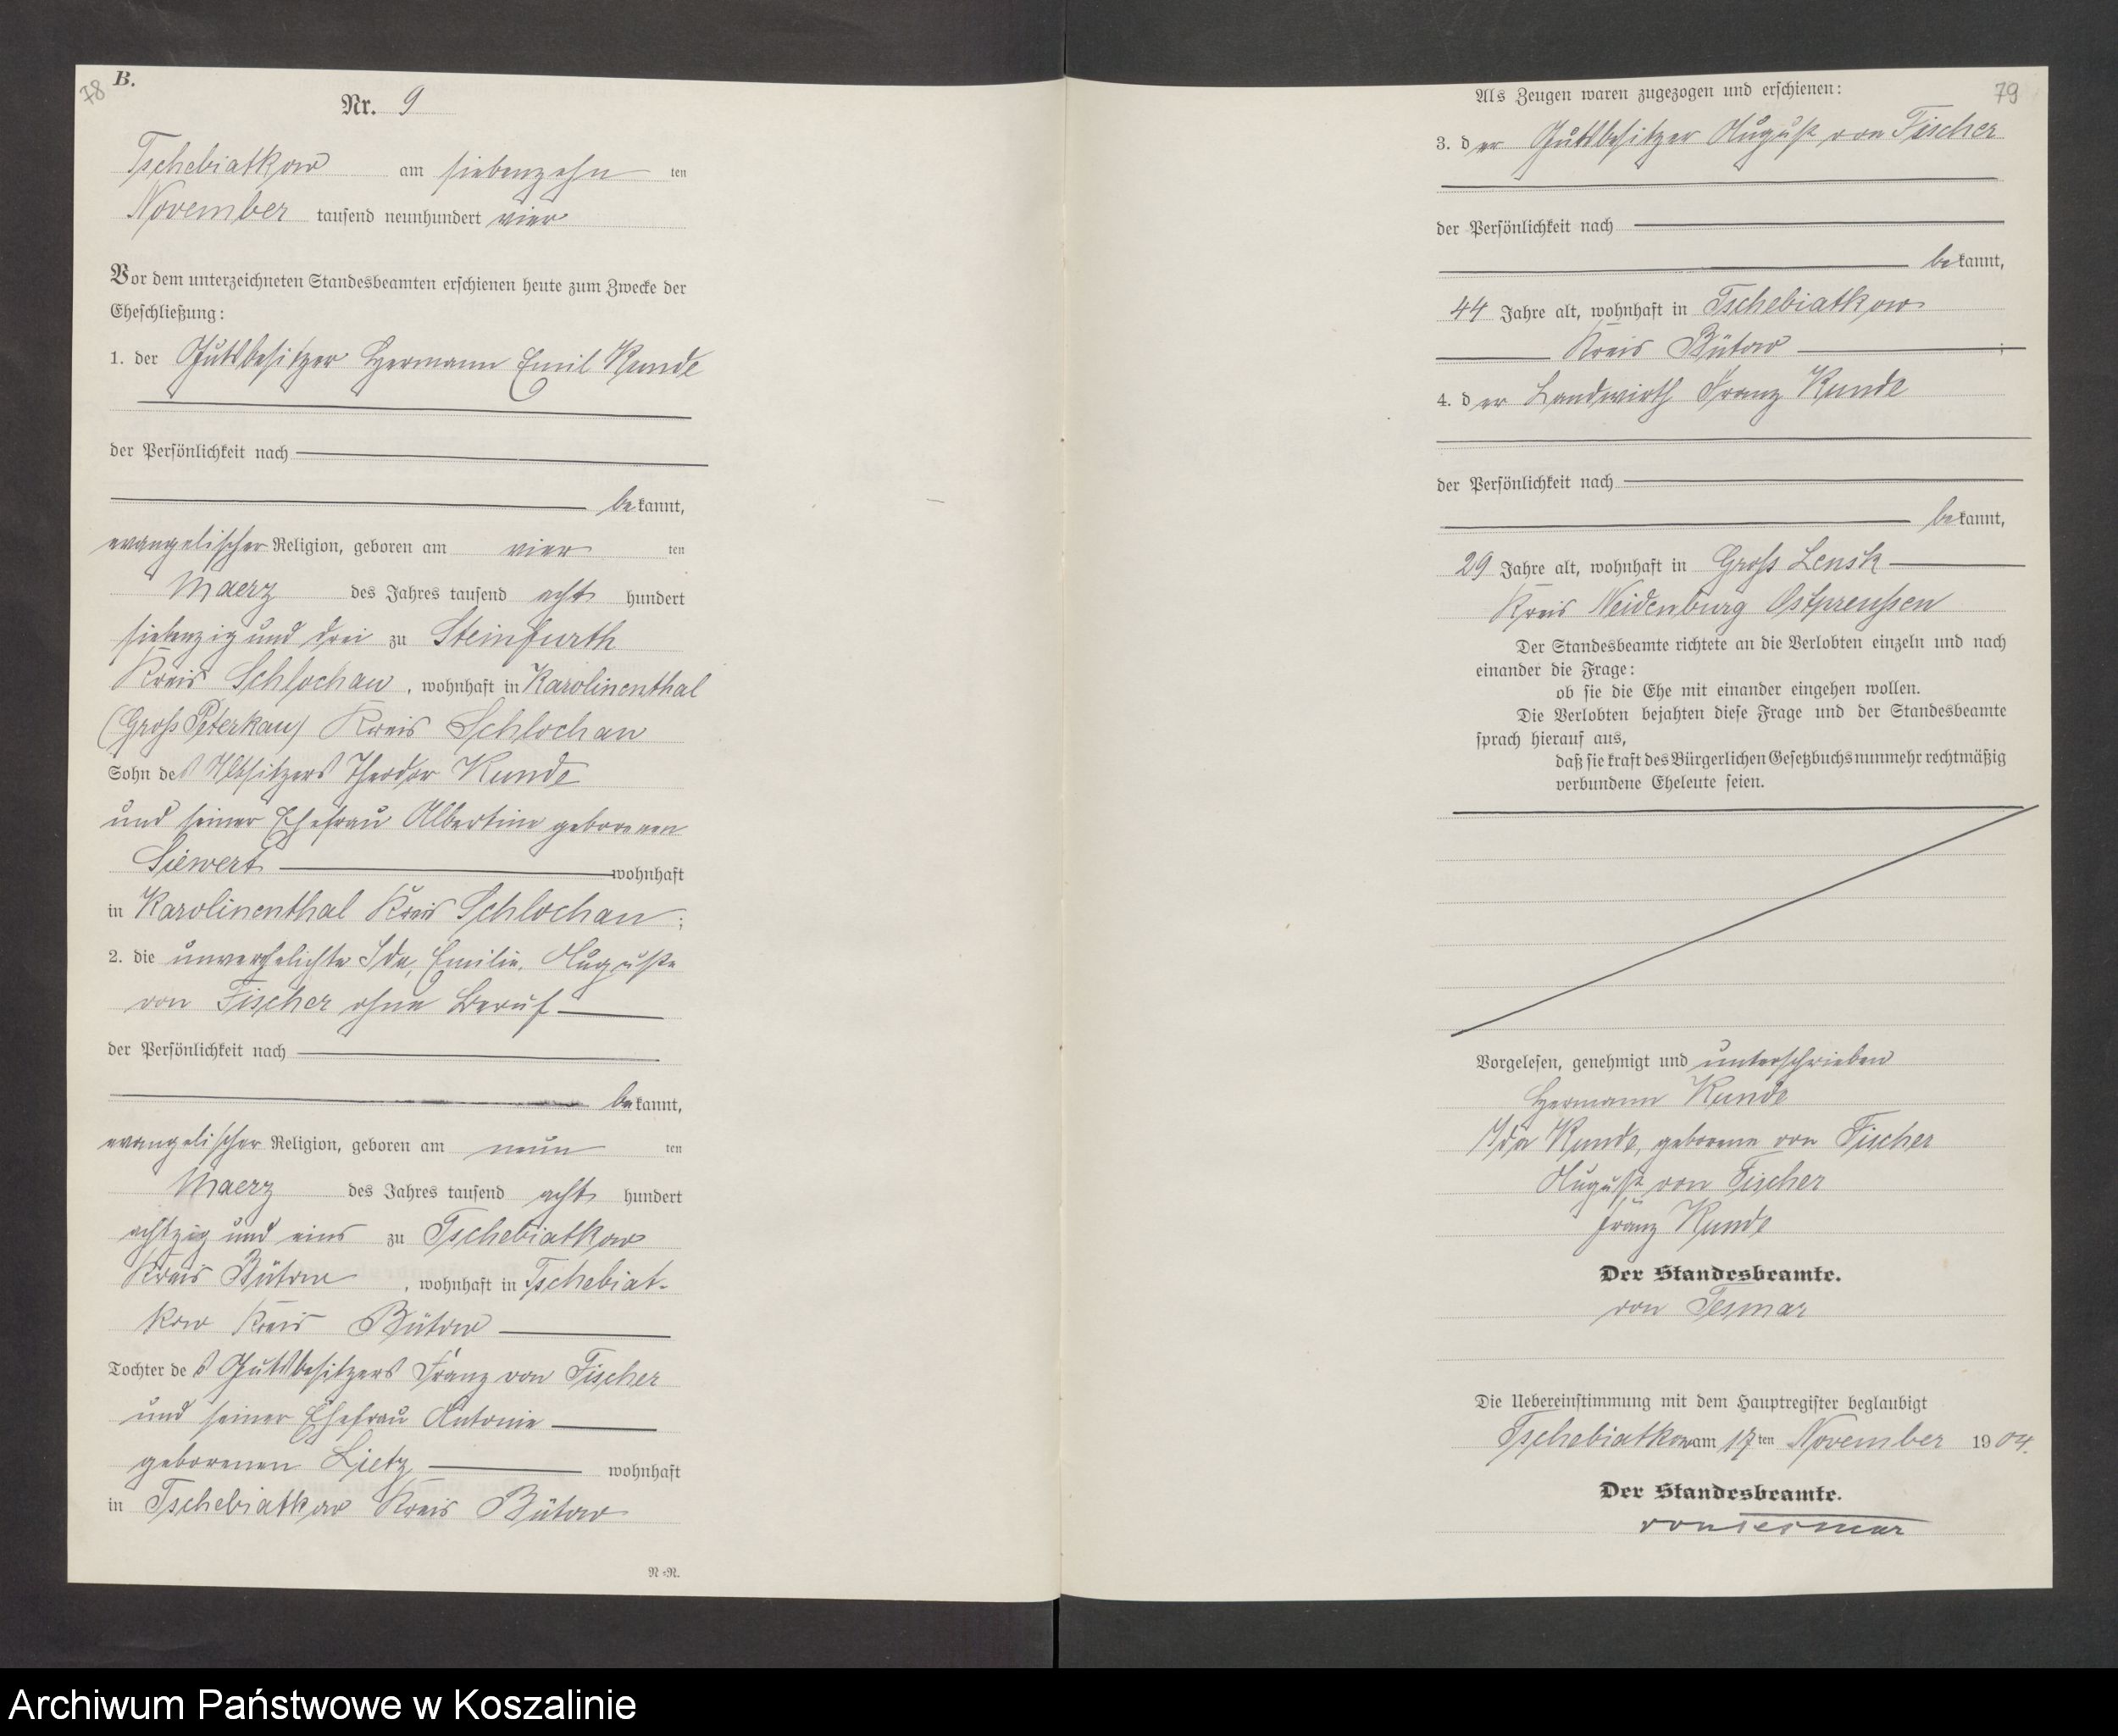 78
B.
Nr. 9
Tschebiatkow am siebenzehn ten
November tausend neunhundert vier
Vor dem unterzeichneten Standesbeamten erschienen heute zum Zwecke der
Eheschließung:
1. der Gutsbesitzer Hermann Emil Kunde
der Persönlichkeit nach
bekannt,
evangelischer Religion, geboren am vier ten
Maerz des Jahres tausend acht hundert
siebenzig und drei zu Steinfurth
Kreis Schlochau, wohnhaft in Karolinenthal
(Groß Peterkau) Kreis Schlochau
Sohn des Altsitzers Theodor Kunde
und seiner Ehefrau Albertine geborenen
Siewert wohnhaft
in Karolinenthal Kreis Schlochau;
2. die unverehelichte Ida, Emilie, Auguste
von Fischer ohne Beruf
der Persönlichkeit nach
bekannt,
evangelischer Religion, geboren am neun ten
Maerz des Jahres tausend acht hundert
achtzig und eins zu Tschebiatkow
Kreis Bütow, wohnhaft in Tschebiat-
kow Kreis Bütow
Tochter des Gutsbesitzers Franz von Fischer
und seiner Ehefrau Antonie
geborenen Lietz wohnhaft
in Tschebiatkow Kreis Bütow
N=N.
79
Als Zeugen waren zugezogen und erschienen:
3. der Gutsbesitzer August von Fischer
der Persönlichkeit nach
bekannt,
44 Jahre alt, wohnhaft in Tschebiatkow
Kreis Bütow;
4. der Landwirth Franz Kunde
der Persönlichkeit nach
bekannt,
29 Jahre alt, wohnhaft in Groß Lensk
Kreis Neidenburg Ostpreußen
Der Standesbeamte richtete an die Verlobten einzeln und nach
einander die Frage:
ob sie die Ehe mit einander eingehen wollen.
Die Verlobten bejahten diese Frage und der Standesbeamte
sprach hierauf aus,
daß sie kraft des Bürgerlichen Gesetzbuchs nunmehr rechtmäßig
verbundene Eheleute seien.
Vorgelesen, genehmigt und unterschrieben
Hermann Kunde
Ida Kunde, geborene von Fischer
August von Fischer
Franz Kunde
Der Standesbeamte.
von Tesmar
Die Uebereinstimmung mit dem Hauptregister beglaubigt
Tschebiatkow am 17ten November 1904.
Der Standesbeamte.
von Tesmar
Archiwum Państwowe w Koszalinie